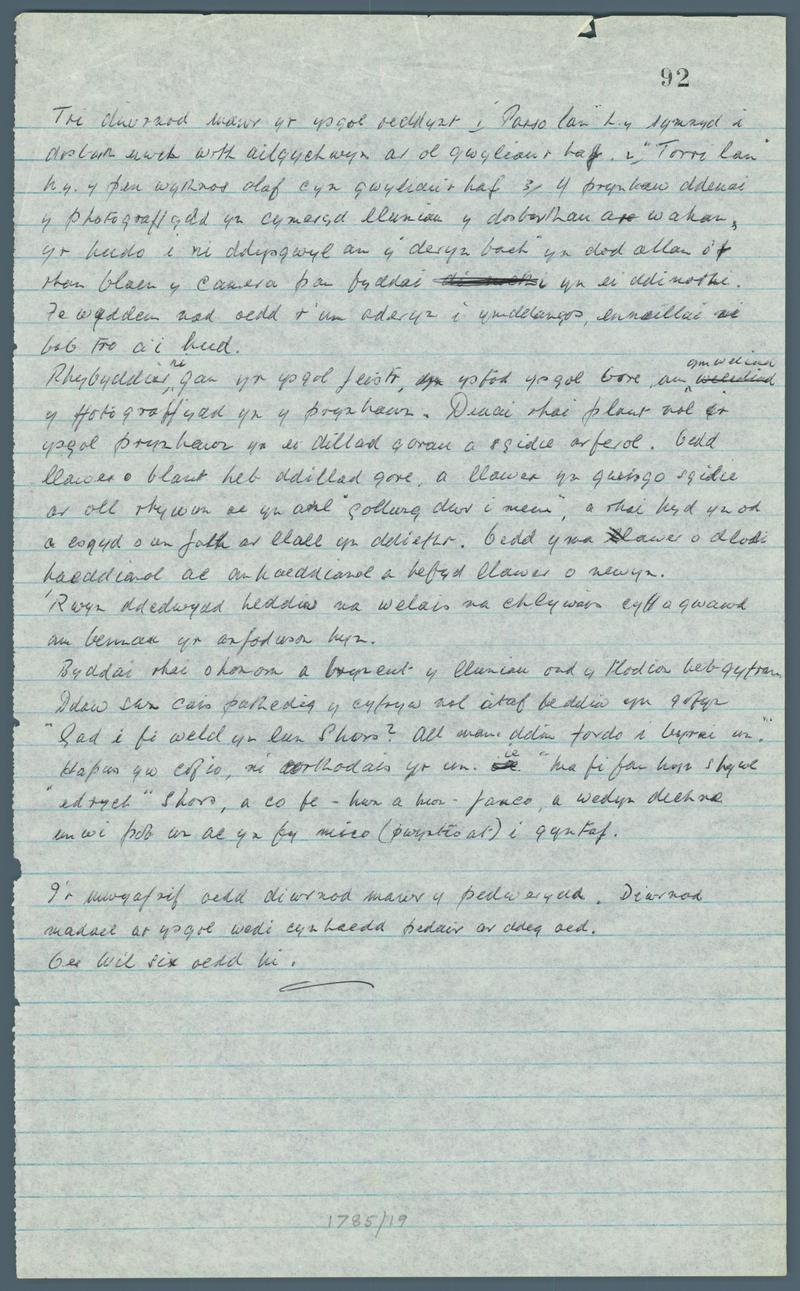 92
Tri diwrnod mawr yr ysgol oeddynt 1, "Passo lan" h.y symnyd i
dosbarth uwch wrth ailgychwyn ar ol gwyliau'r haf. 2, "Torri lan"
h.y. y pen wythnos olaf cyn gwyliau'r haf 3, Y prynhaw ddeuai
y photograffydd yn cymeryd lluniau y dosbarthau ar wahan,
yr hudo i ni ddysgwyl am y "deryn bach" yn dod allan o'r
rhan blaen y camera pan fyddai yn ei ddinoethi.
Fe wyddem nad oedd r'un aderyn i ymddangos, enneillai
bob tro a'i hud.
Rhybyddid ni gan yr ysgol feistr, ystod ysgol bore, am ymweliad
y ffotograffydd yn y prynhawn. Deuai rhai plant nol i'r
ysgol prynhawn yn ei dillad gorau a sgidie arferol. Oedd
llawer o blant heb ddillad gore, a llawer yn gwisgo sgidie
ar oll rhywun ac yn aml "gollwng dwr i mewn", a rhai hyd yn od
a esgyd o un fath ar llall yn ddiethr. Oedd yma llawer o dlodi
haeddianol ac anhaeddianol a hefyd llawer o newyn.
'Rwyn ddedwydd heddiw na welais na chlywais cyff a gwawd
am bennau yr anfodusion hyn.
Byddai rhai ohonom a brynent y lluniau ond y tlodion heb gyfran
Ddaw swn cais pathedig y cyfryw nol ataf heddiw yn gofyn
"Gad i fi weld yn lun Shors? All mam ddim fordo i byrni un."
Hapus yw cofio, ni wrthodais yr un. "Ma fi fan hyn shgwl
"edrych" Shors, a co fe - hwn a hon - fanco, a wedyn dechre
enwi pob un ac yn fy nisco (pwyntio at) i gyntaf.
I'r mwyafrif oedd diwrnod mawr y pedwerydd. Diwrnod
madael ar ysgol wedi cynhaedd pedair ar ddeg oed.
Gee Wil six oedd hi.
1785/19